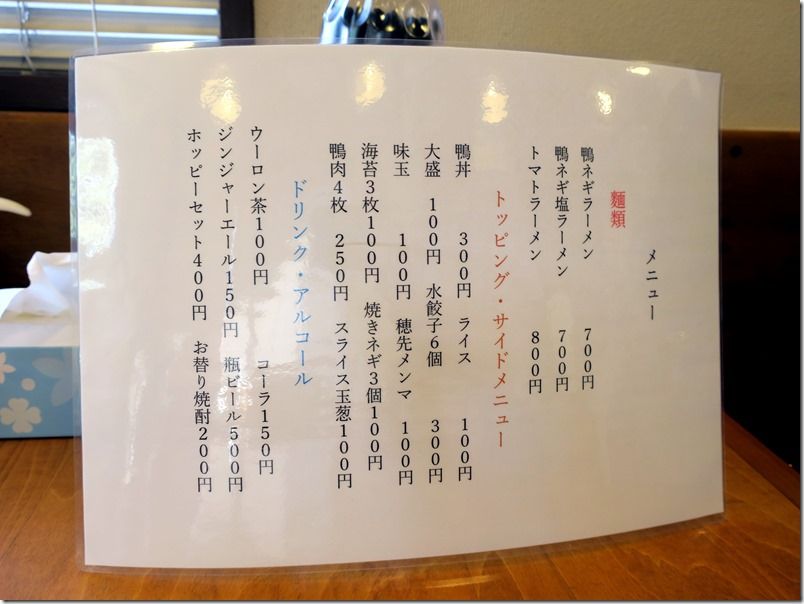 メニュー
麺類
鴨ネギラーメン 700円
鴨ネギ塩ラーメン 700円
トマトラーメン 800円
トッピング・サイドメニュー
鴨丼 300円 ライス 100円
大盛 100円 水餃子6個 300円
味玉 100円 穂先メンマ 100円
海苔3枚100円 焼きネギ3個100円
鴨肉4枚 250円 スライス玉葱100円
ドリンク・アルコール
ウーロン茶100円 コーラ150円
ジンジャーエール150円 瓶ビール500円
ホッピーセット400円 お替り焼酎200円